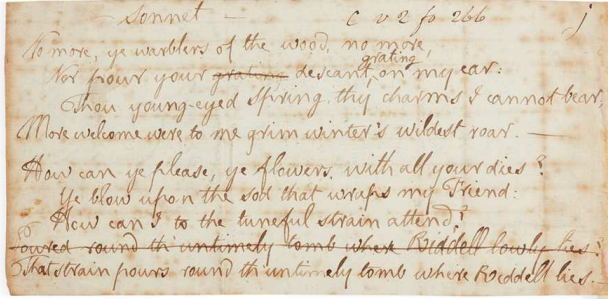 — Sonnet — C v 2 fo 266 j
No more, ye warblers of the wood, no more,
grating
Nor pour your grating descant, on my ear:
Thou young-eyed Spring, thy charms I cannot bear;
More welcome were to me grim winter's wildest roar. —
How can ye please, ye flowers, with all your dies?
Ye blow upon the sod that wraps my Friend:
How can I to the tuneful strain attend?
Poured round th' untimely tomb where Riddell lowly lies.
That strain pours round th' untimely tomb where Riddell lies. —